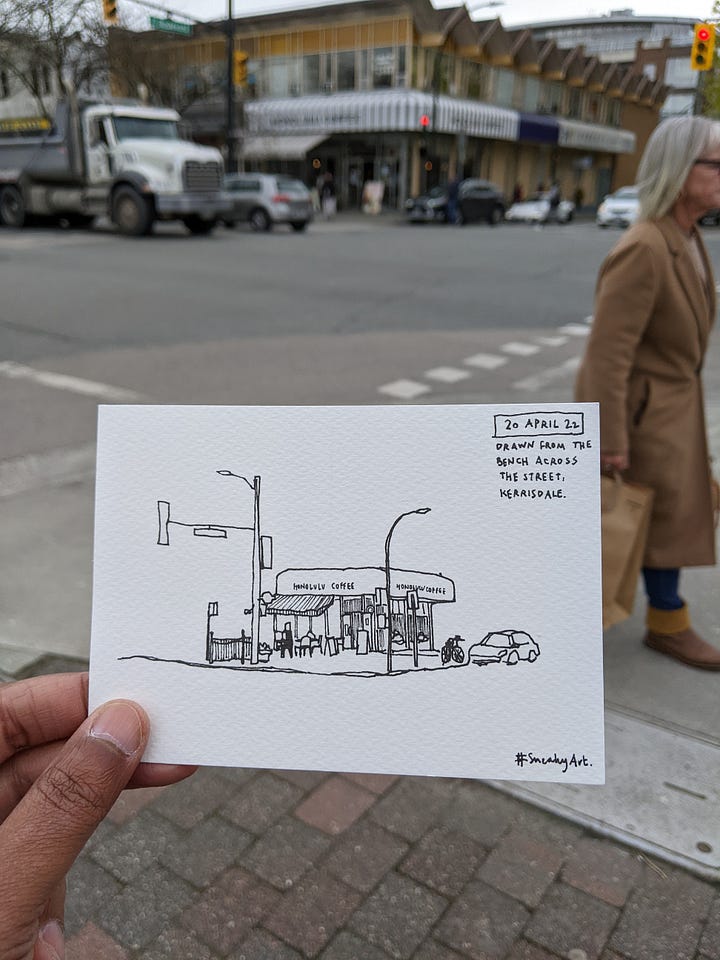 20 APRIL 22
DRAWN FROM THE
BENCH ACROSS
THE STREET,
KERRISDALE.
HONOLULU COFFEE
HONOLULU COFFEE
#SneakyArt.